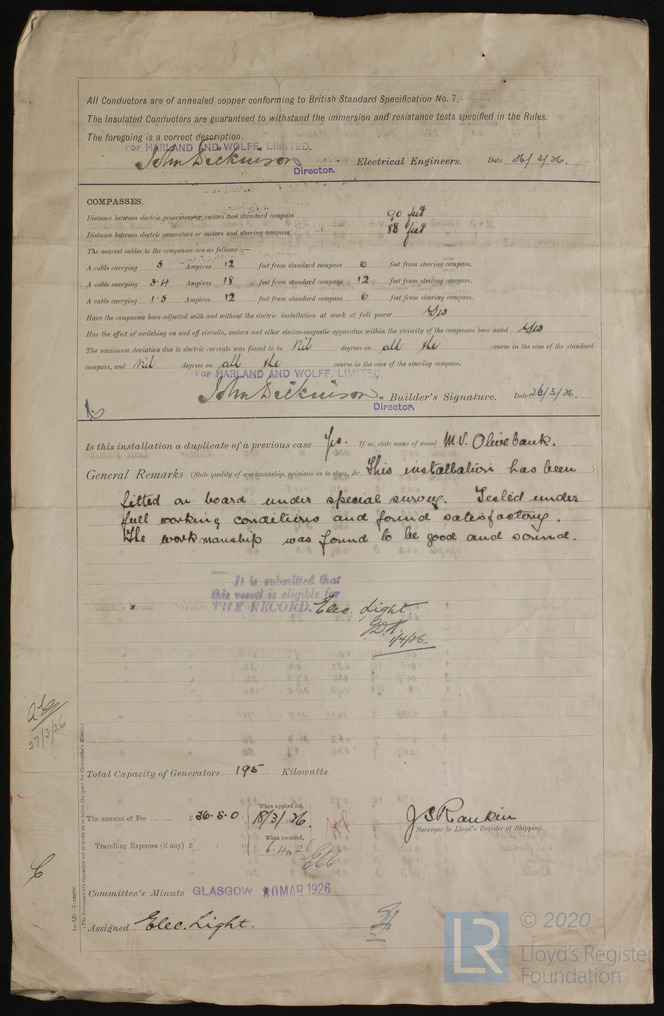 All Conductors are of annealed copper conforming to British Standard Specification No. 7.
The Insulated Conductors are guaranteed to withstand the immersion and resistance tests specified in the Rules.
The foregoing is a correct description.
For HARLAND AND WOLFF, LIMITED.
John Dickinson Electrical Engineers. Date 26/3/26.
Director.
COMPASSES.
Distance between electric generators or motors and standard compass 90 feet
Distance between electric generators or motors and steering compass 88 feet
The nearest cables to the compasses are as follows:—
A cable carrying 3 Ampères 12 feet from standard compass 6 feet from steering compass.
A cable carrying 3.4 Ampères 18 feet from standard compass 12 feet from steering compass.
A cable carrying 1.3 Ampères 12 feet from standard compass 6 feet from steering compass.
Have the compasses been adjusted with and without the electric installation at work at full power Yes
Has the effect of switching on and off circuits, motors and other electro-magnetic apparatus within the vicinity of the compasses been noted Yes
The maximum deviation due to electric currents was found to be Nil degrees on all the course in the case of the standard
compass, and Nil degrees on all the course in the case of the steering compass.
For HARLAND AND WOLFF, LIMITED.
John Dickinson. Builder's Signature. Date 26/3/26.
Director.
Is this installation a duplicate of a previous case Yes. If so, state name of vessel M.V. Olivebank.
General Remarks (State quality of workmanship, opinions as to class, &c. This installation has been )
fitted on board under special survey. Tested under
full working conditions and found satisfactory.
The workmanship was found to be good and sound.
It is submitted that
this vessel is eligible for
THE RECORD. Elec. Light
1/4/26.
27/3/26
Total Capacity of Generators 195 Kilowatts
The amount of Fee ... ... £ 36.5.0 When applied for, 18/3/26.
Travelling Expenses (if any) £ : : When received, 6.4.26
J S Rankin
Surveyor to Lloyd's Register of Shipping.
Committee's Minute GLASGOW 30 MAR 1926
Assigned Elec. Light.
LR © 2020
Lloyd's Register
Foundation